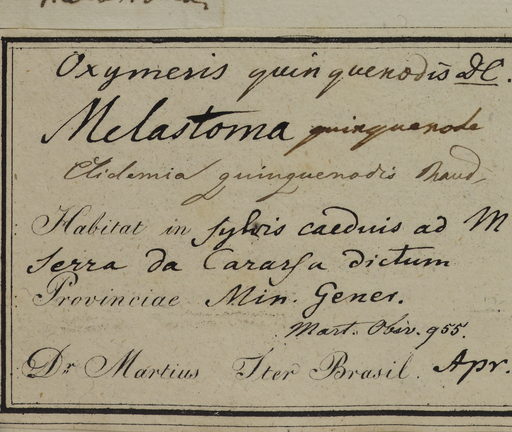 Oxymeris quinquenodis DC.
Melastoma quinquenode
Clidemia quinquenodis Naud.
Habitat in sylvis caeduis ad M
Serra da Cararsa dictum
Provinciae Min. Gener.
Mart. Obsv. 955.
Dr Martius Iter Brasil. Apr.